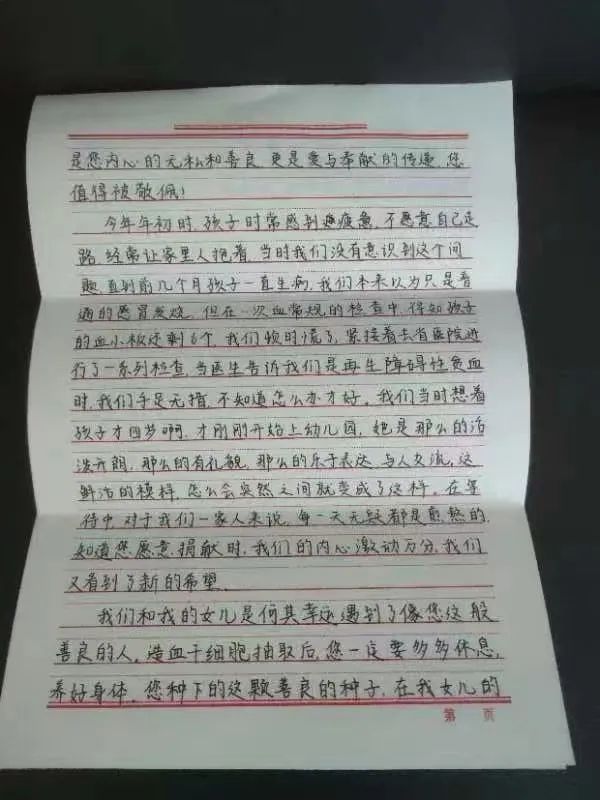 是您内心的无私和善良，更是爱与奉献的传递，您
值得被敬佩！
今年年初时，孩子时常感到疲惫，不愿意自己走
路，经常让家里人抱着，当时我们没有意识到这个问
题，直到前几个月孩子一直生病，我们本来以为只是普
通的感冒发烧，但在一次血常规的检查中，得知孩子
的血小板还剩6个，我们顿时慌了，紧接着去省医院进
行了一系列检查，当医生告诉我们是再生障碍性贫血
时，我们手足无措，不知道怎么办才好。我们当时想着
孩子才四岁啊，才刚刚开始上幼儿园，她是那么的活
泼开朗，那么的有礼貌，那么的乐于表达，与人交流，这
鲜活的模样，怎么会突然之间就变成了这样。在等
待中，对于我们一家人来说，每一天无疑都是煎熬的，
知道您愿意捐献时，我们的内心激动万分，我们
又看到了新的希望。
我们和我的女儿是何其幸运遇到了像您这般
善良的人，造血干细胞抽取后，您一定要多多休息，
养好身体。您种下的这颗善良的种子，在我女儿的
第 页